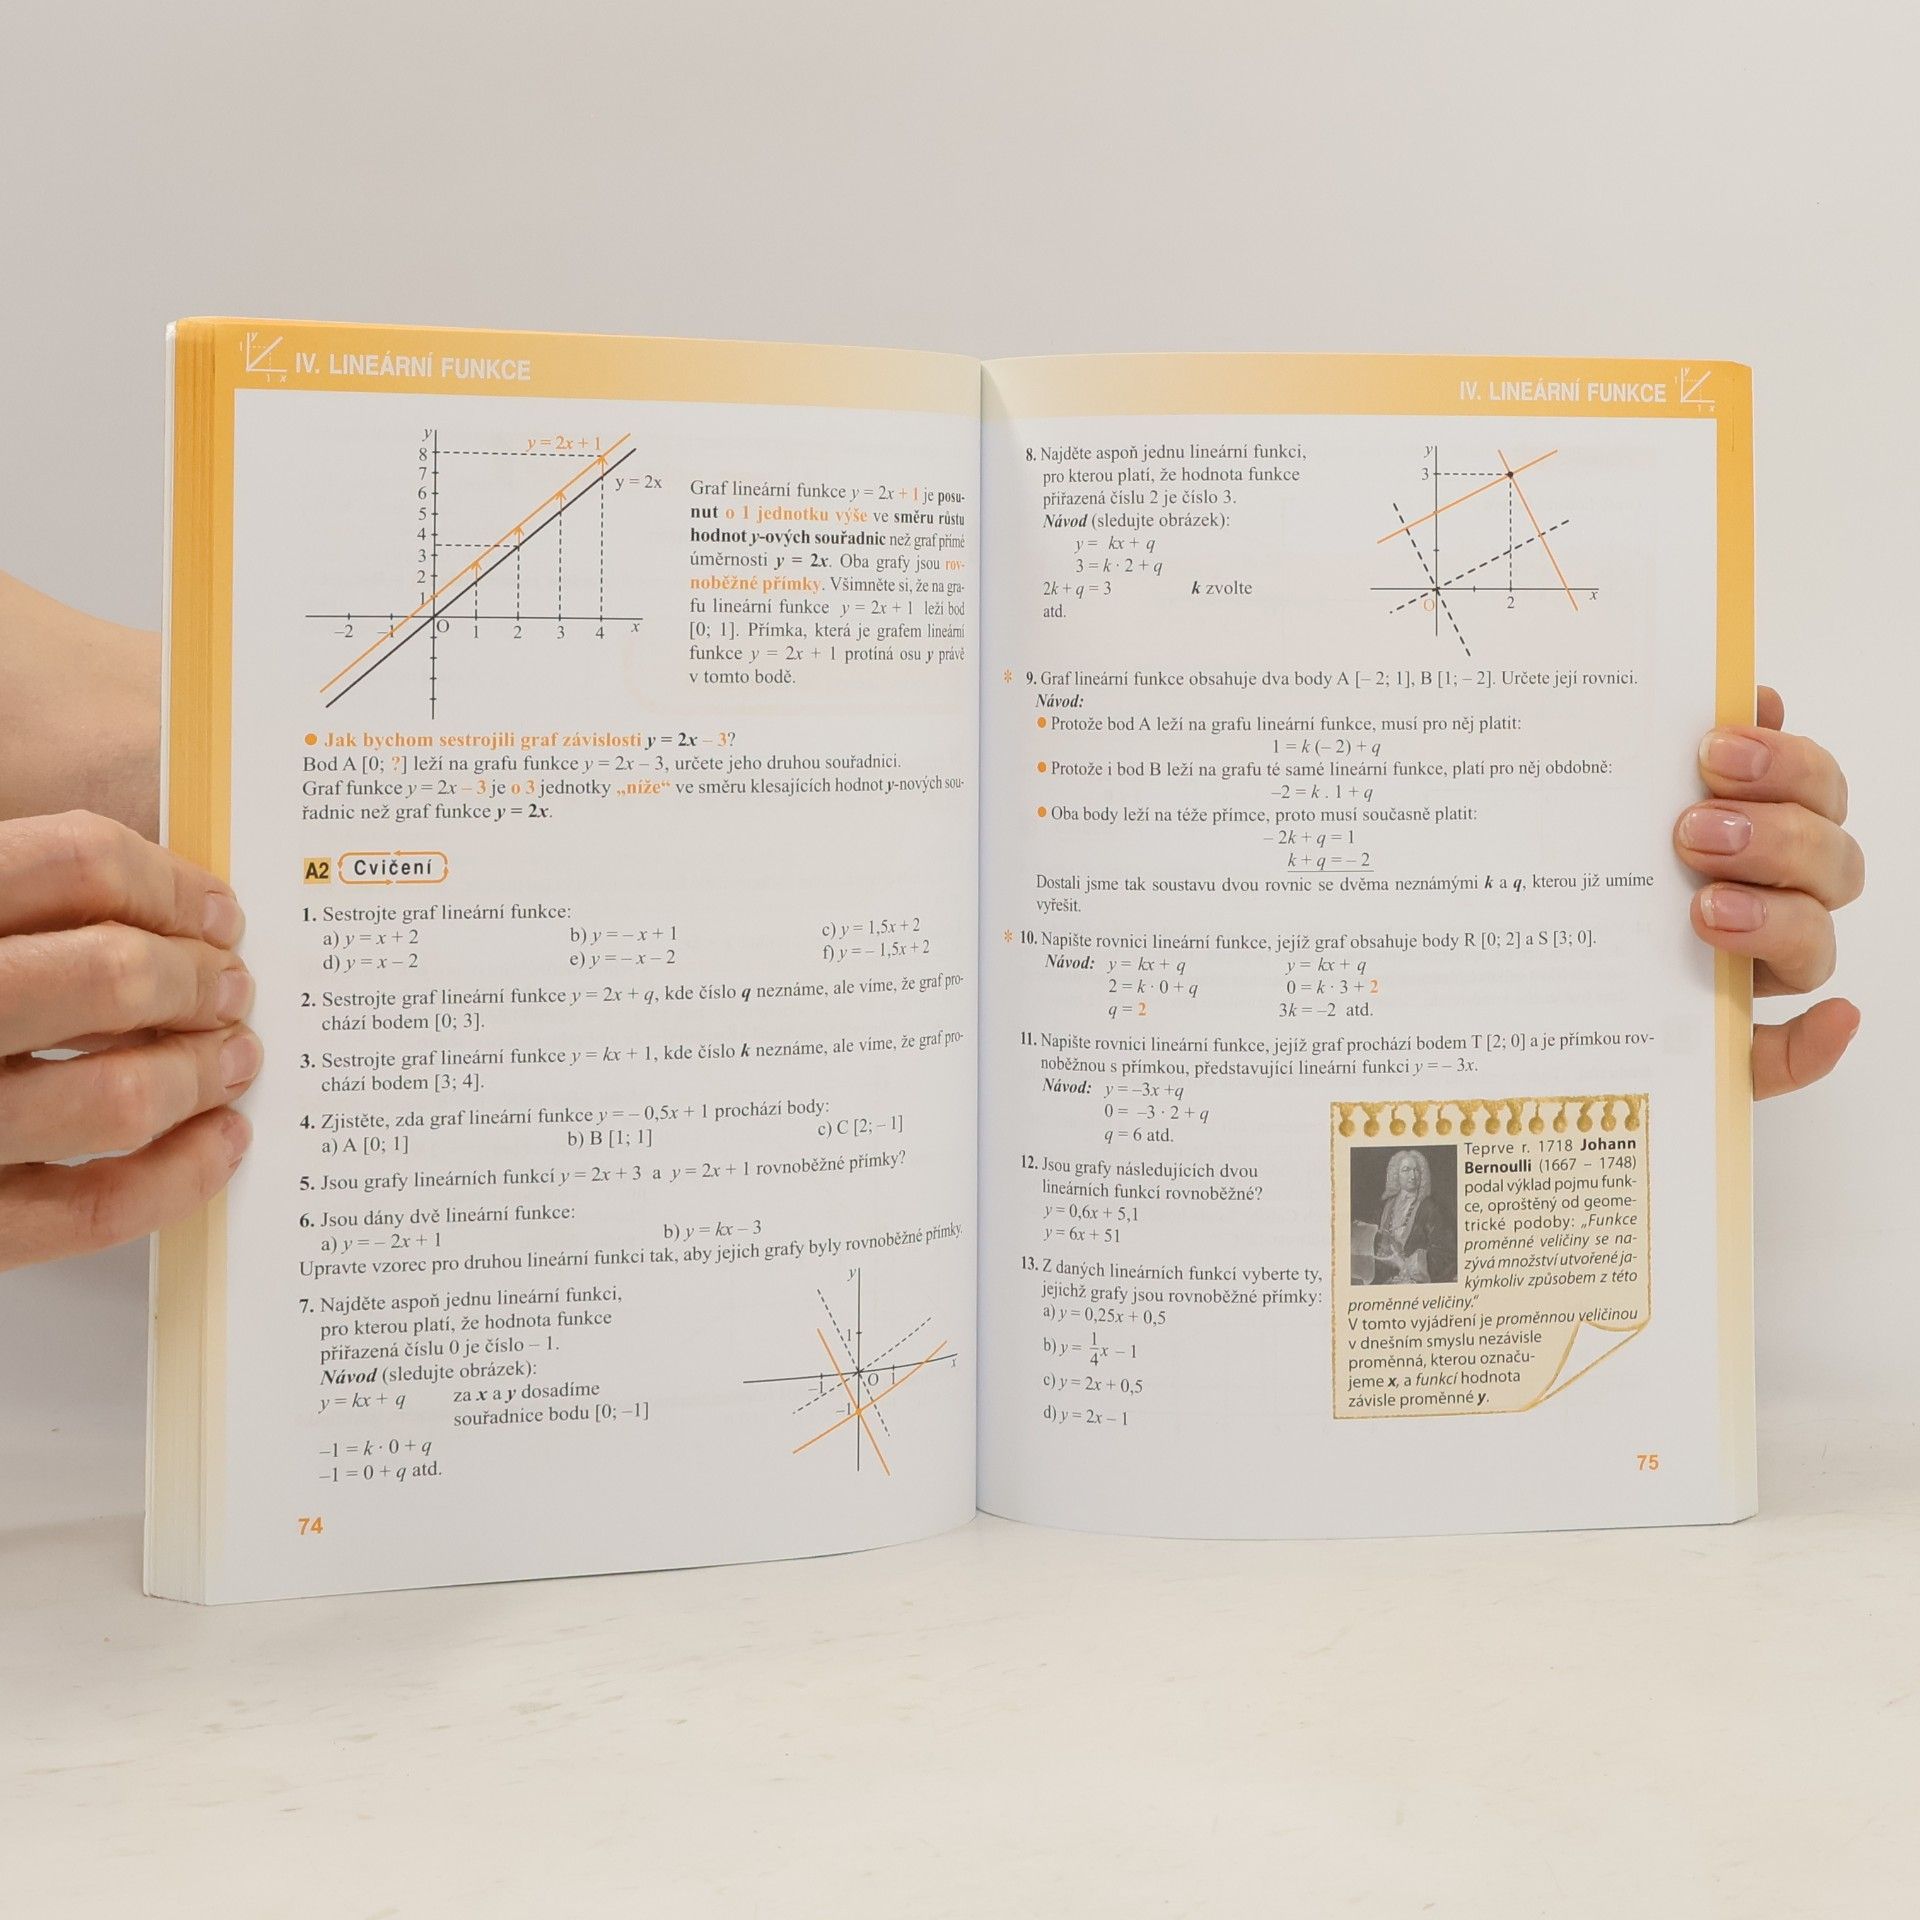 IV. LINEÁRNÍ FUNKCE
y
8
7
6
5
4
3
2
1
–2
–1
O
1
2
3
4
x
y = 2x + 1
y = 2x
Graf lineární funkce y = 2x + 1 je posu-
nut o 1 jednotku výše ve směru růstu
hodnot y-ových souřadnic než graf přímé
úměrnosti y = 2x. Oba grafy jsou rov-
noběžné přímky. Všimněte si, že na gra-
fu lineární funkce y = 2x + 1 leží bod
[0; 1]. Přímka, která je grafem lineární
funkce y = 2x + 1 protíná osu y právě
v tomto bodě.
● Jak bychom sestrojili graf závislosti y = 2x – 3?
Bod A [0; ?] leží na grafu funkce y = 2x – 3, určete jeho druhou souřadnici.
Graf funkce y = 2x – 3 je o 3 jednotky „níže“ ve směru klesajících hodnot y-nových sou-
řadnic než graf funkce y = 2x.
A2 Cvičení
1. Sestrojte graf lineární funkce:
a) y = x + 2 b) y = – x + 1 c) y = 1,5x + 2
d) y = x – 2 e) y = – x – 2 f) y = – 1,5x + 2
2. Sestrojte graf lineární funkce y = 2x + q, kde číslo q neznáme, ale víme, že graf pro-
chází bodem [0; 3].
3. Sestrojte graf lineární funkce y = kx + 1, kde číslo k neznáme, ale víme, že graf pro-
chází bodem [3; 4].
4. Zjistěte, zda graf lineární funkce y = – 0,5x + 1 prochází body:
a) A [0; 1] b) B [1; 1] c) C [2; – 1]
5. Jsou grafy lineárních funkcí y = 2x + 3 a y = 2x + 1 rovnoběžné přímky?
6. Jsou dány dvě lineární funkce:
a) y = – 2x + 1 b) y = kx – 3
Upravte vzorec pro druhou lineární funkci tak, aby jejich grafy byly rovnoběžné přímky.
7. Najděte aspoň jednu lineární funkci,
pro kterou platí, že hodnota funkce
přiřazená číslu 0 je číslo – 1.
Návod (sledujte obrázek):
y = kx + q za x a y dosadíme
souřadnice bodu [0; –1]
–1 = k · 0 + q
–1 = 0 + q atd.
y
1
–1
O
1
x
–1
74
IV. LINEÁRNÍ FUNKCE
8. Najděte aspoň jednu lineární funkci,
pro kterou platí, že hodnota funkce
přiřazená číslu 2 je číslo 3.
Návod (sledujte obrázek):
y = kx + q
3 = k · 2 + q
2k + q = 3 k zvolte
atd.
y
3
O
2
x
* 9. Graf lineární funkce obsahuje dva body A [– 2; 1], B [1; – 2]. Určete její rovnici.
Návod:
● Protože bod A leží na grafu lineární funkce, musí pro něj platit:
1 = k (– 2) + q
● Protože i bod B leží na grafu té samé lineární funkce, platí pro něj obdobně:
–2 = k . 1 + q
● Oba body leží na téže přímce, proto musí současně platit:
– 2k + q = 1
k + q = – 2
Dostali jsme tak soustavu dvou rovnic se dvěma neznámými k a q, kterou již umíme
vyřešit.
* 10. Napište rovnici lineární funkce, jejíž graf obsahuje body R [0; 2] a S [3; 0].
Návod: y = kx + q y = kx + q
2 = k · 0 + q 0 = k · 3 + 2
q = 2 3k = –2 atd.
11. Napište rovnici lineární funkce, jejíž graf prochází bodem T [2; 0] a je přímkou rov-
noběžnou s přímkou, představující lineární funkci y = – 3x.
Návod: y = –3x +q
0 = –3 · 2 + q
q = 6 atd.
12. Jsou grafy následujících dvou
lineárních funkcí rovnoběžné?
y = 0,6x + 5,1
y = 6x + 51
13. Z daných lineárních funkcí vyberte ty,
jejichž grafy jsou rovnoběžné přímky:
a) y = 0,25x + 0,5
b) y = 1/4 x – 1
c) y = 2x + 0,5
d) y = 2x – 1
Teprve r. 1718 Johann
Bernoulli (1667 – 1748)
podal výklad pojmu funk-
ce, oproštěný od geome-
trické podoby: „Funkce
proměnné veličiny se na-
zývá množství utvořené ja-
kýmkoliv způsobem z této
proměnné veličiny.“
V tomto vyjádření je proměnnou veličinou
v dnešním smyslu nezávisle
proměnná, kterou označu-
jeme x, a funkcí hodnota
závisle proměnné y.
75